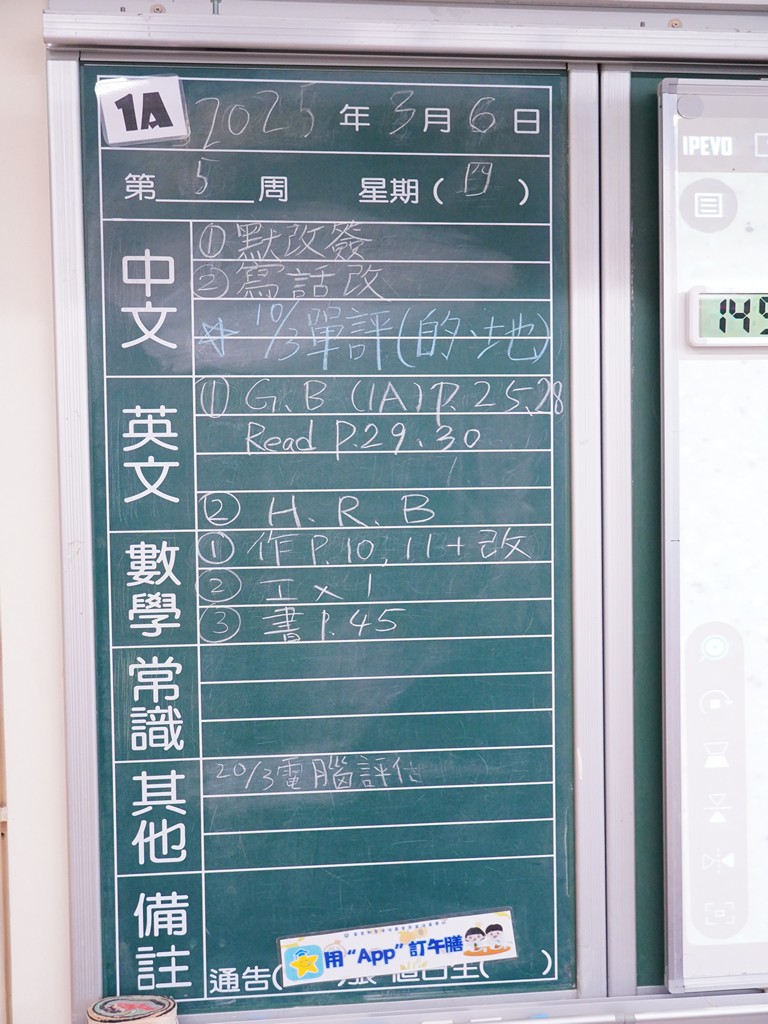 1A 2025年3月6日
第5周 星期(四)
中文
①默改簽
②寫話改
* 10/3單評(的、地)
英文
① G.B (1A) P.25,28
Read P.29、30
② H、R、B
數學
①作P.10,11+改
②工x1
③書P.45
常識
其他
20/3電腦評估
備註
用“App”訂午膳
通告( )
IPEVO